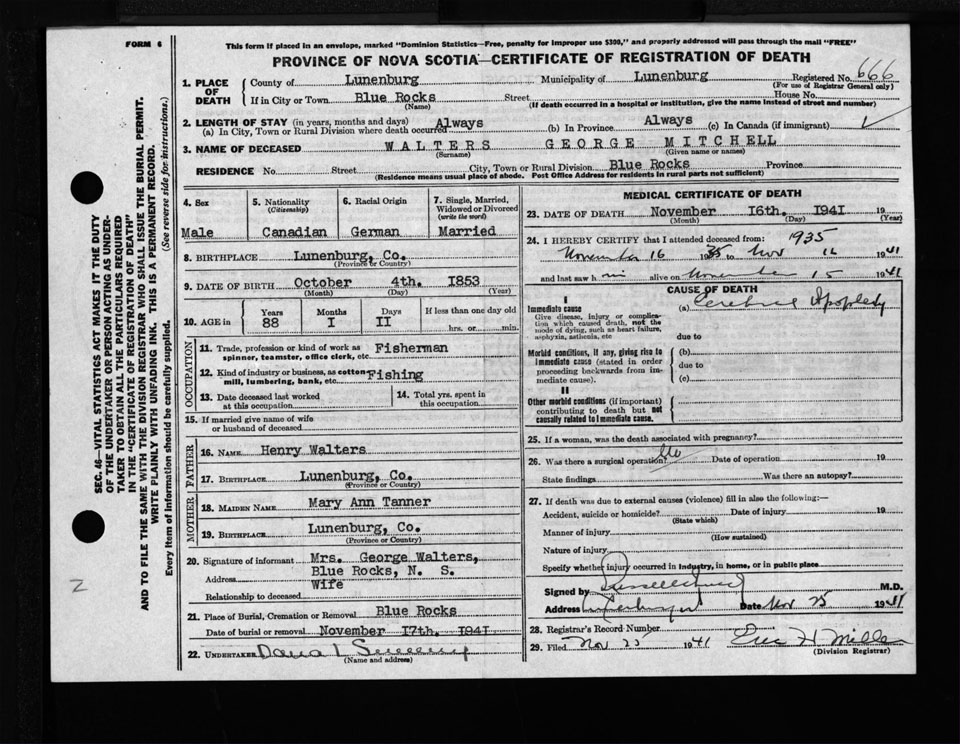 FORM 6
This form if placed in an envelope, marked "Dominion Statistics—Free, penalty for improper use $300," and properly addressed will pass through the mail "FREE"
PROVINCE OF NOVA SCOTIA—CERTIFICATE OF REGISTRATION OF DEATH
1. PLACE OF DEATH
County of Lunenburg Municipality of Lunenburg Registered No. 666
(For use of Registrar General only)
If in City or Town Blue Rocks Street House No.
(Name) (If death occurred in a hospital or institution, give the name instead of street and number)
2. LENGTH OF STAY (in years, months and days)
(a) In City, Town or Rural Division where death occurred Always (b) In Province Always (c) In Canada (if immigrant)
3. NAME OF DECEASED WALTERS GEORGE MITCHELL
(Surname) (Given name or names)
RESIDENCE No. Street City, Town or Rural Division Blue Rocks Province
(Residence means usual place of abode. Post Office Address for residents in rural parts not sufficient)
4. Sex
Male
5. Nationality
(Citizenship)
Canadian
6. Racial Origin
German
7. Single, Married,
Widowed or Divorced
(write the word)
Married
8. BIRTHPLACE Lunenburg, Co.
(Province or Country)
9. DATE OF BIRTH October 4th. 1853
(Month) (Day) (Year)
10. AGE in
Years Months Days If less than one day old
88 I II hrs. or min.
OCCUPATION
11. Trade, profession or kind of work as Fisherman
spinner, teamster, office clerk, etc.
12. Kind of industry or business, as cotton Fishing
mill, lumbering, bank, etc.
13. Date deceased last worked
at this occupation
14. Total yrs. spent in
this occupation
15. If married give name of wife
or husband of deceased
FATHER
16. NAME Henry Walters
17. BIRTHPLACE Lunenburg, Co.
(Province or Country)
MOTHER
18. MAIDEN NAME Mary Ann Tanner
19. BIRTHPLACE Lunenburg, Co.
(Province or Country)
20. Signature of informant Mrs. George Walters,
Address Blue Rocks, N. S.
Relationship to deceased Wife
21. Place of Burial, Cremation or Removal Blue Rocks
Date of burial or removal November 17th. 1941
22. UNDERTAKER
(Name and address)
MEDICAL CERTIFICATE OF DEATH
23. DATE OF DEATH November 16th. 1941 19
(Month) (Day) (Year)
24. I HEREBY CERTIFY that I attended deceased from: 1935
November 16 1935 to Nov 16 1941
and last saw him alive on November 15 1941
CAUSE OF DEATH
I
Immediate cause
Give disease, injury or complication which caused death, not the
mode of dying, such as heart failure,
asphyxia, asthenia, etc
(a) Cerebral Apoplexy
due to
Morbid conditions, if any, giving rise to
immediate cause (stated in order
proceeding backwards from immediate cause).
(b)
due to
(c)
II
Other morbid conditions (if important)
contributing to death but not
causally related to immediate cause.
25. If a woman, was the death associated with pregnancy?
26. Was there a surgical operation? No Date of operation 19
State findings Was there an autopsy?
27. If death was due to external causes (violence) fill in also the following:—
Accident, suicide or homicide? Date of injury 19
(State which)
Manner of injury
(How sustained)
Nature of injury
Specify whether injury occurred in industry, in home, or in public place
Signed by M.D.
Address Date Nov 25 1941
28. Registrar's Record Number
29. Filed Nov 23 1941
(Division Registrar)
SEC. 46—VITAL STATISTICS ACT MAKES IT THE DUTY
OF THE UNDERTAKER OR PERSON ACTING AS UNDERTAKER TO OBTAIN ALL THE PARTICULARS REQUIRED
IN THE "CERTIFICATE OF REGISTRATION OF DEATH"
AND TO FILE THE SAME WITH THE DIVISION REGISTRAR WHO SHALL ISSUE THE BURIAL PERMIT.
WRITE PLAINLY WITH UNFADING INK. THIS IS A PERMANENT RECORD.
Every item of information should be carefully supplied. (See reverse side for instructions.)